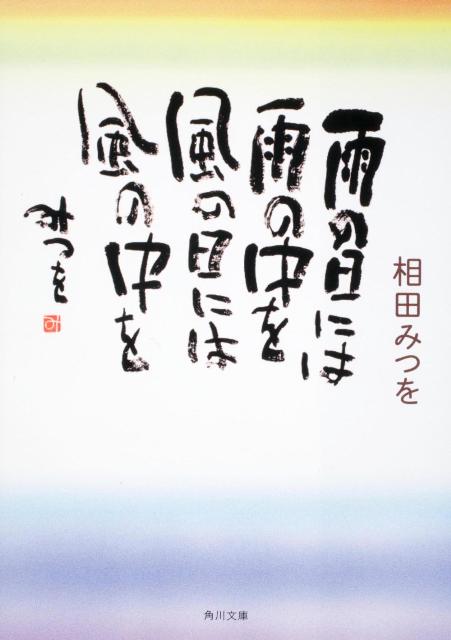 相田みつを
雨の日には
雨の中を
風の日には
風の中を
みつを
み
角川文庫